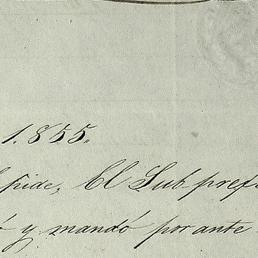 1.855.
pide, El Subprefe
ó y mandó por ante